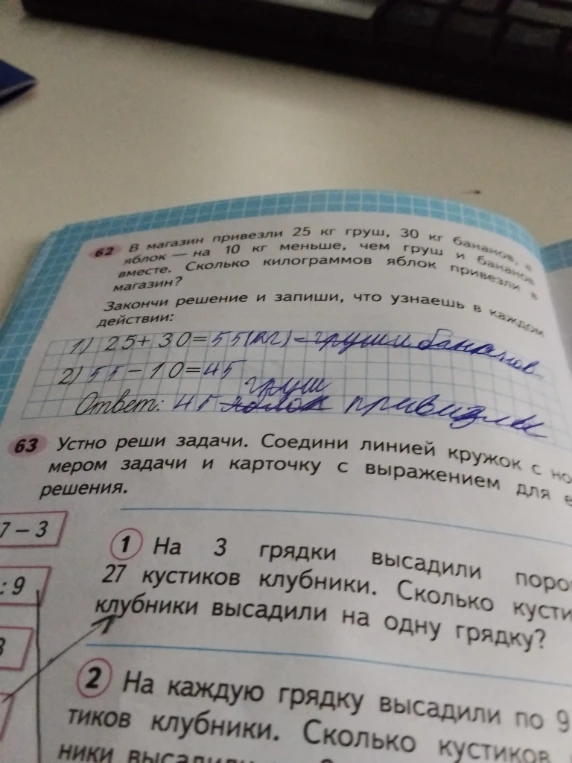 62 В магазин привезли 25 кг груш, 30 кг бананов, а
яблок — на 10 кг меньше, чем груш и бананов
вместе. Сколько килограммов яблок привезли в
магазин?
Закончи решение и запиши, что узнаешь в каждом
действии:
1) 25+30=55(кг)-груш и бананов.
2) 55-10=45
груш
Ответ: 45 яблок привизли
63 Устно реши задачи. Соедини линией кружок с но
мером задачи и карточку с выражением для е
решения.
7 – 3
: 9
1 На 3 грядки высадили поро
27 кустиков клубники. Сколько кусти
клубники высадили на одну грядку?
2 На каждую грядку высадили по 9
тиков клубники. Сколько кустиков
ники